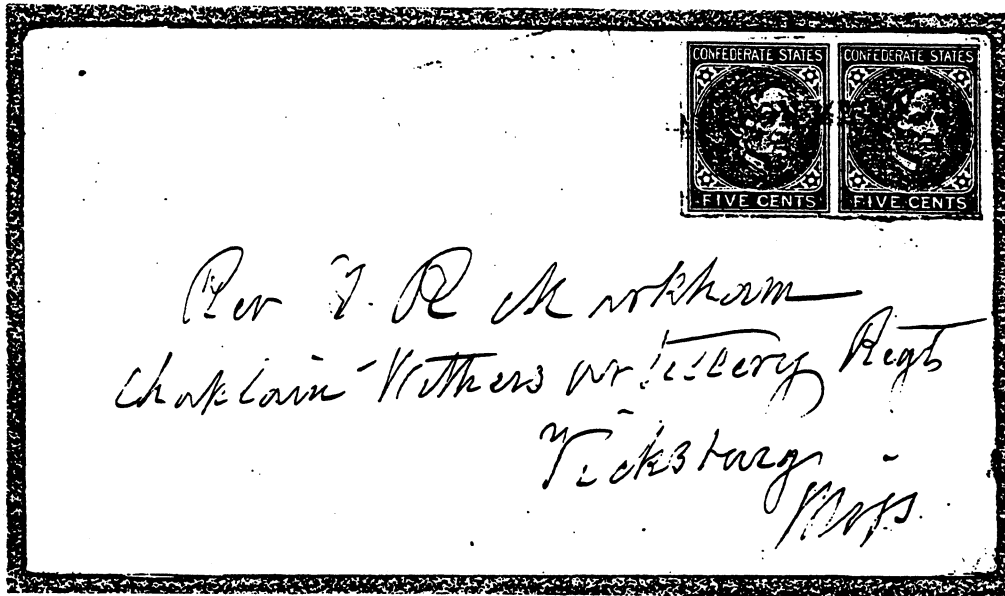 CONFEDERATE STATES CONFEDERATE STATES
FIVE CENTS FIVE CENTS
Rev T. R Markham
Chaplain Withers artillery Regt
Vicksburg
Miss.